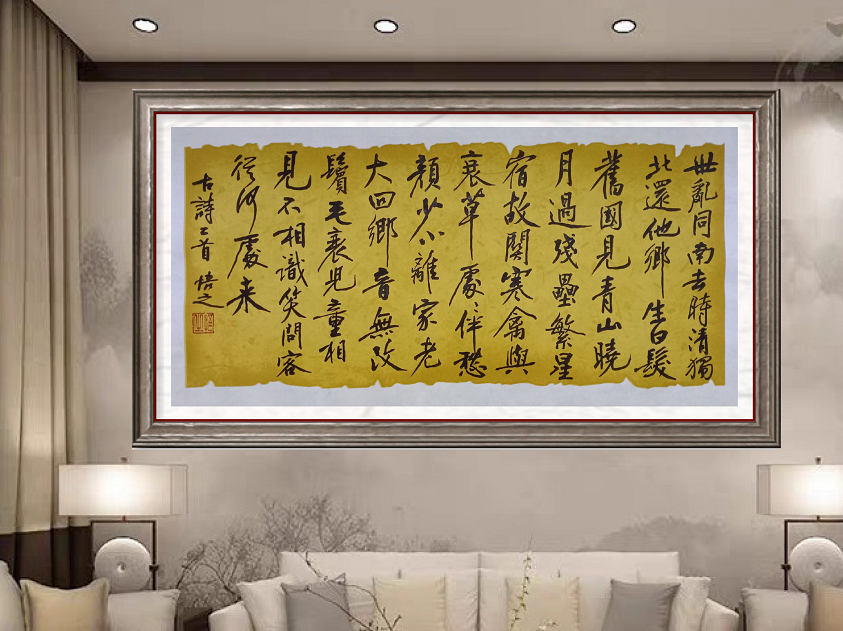 世亂同南去時清獨
北還他鄉生白髮
舊國見青山曉
月過殘壘繁星
宿故關寒禽與
衰草處〻伴愁
顏少小離家老
大回鄉音無改
鬢毛衰兒童相
見不相識笑問客
從何處來
古詩二首 之